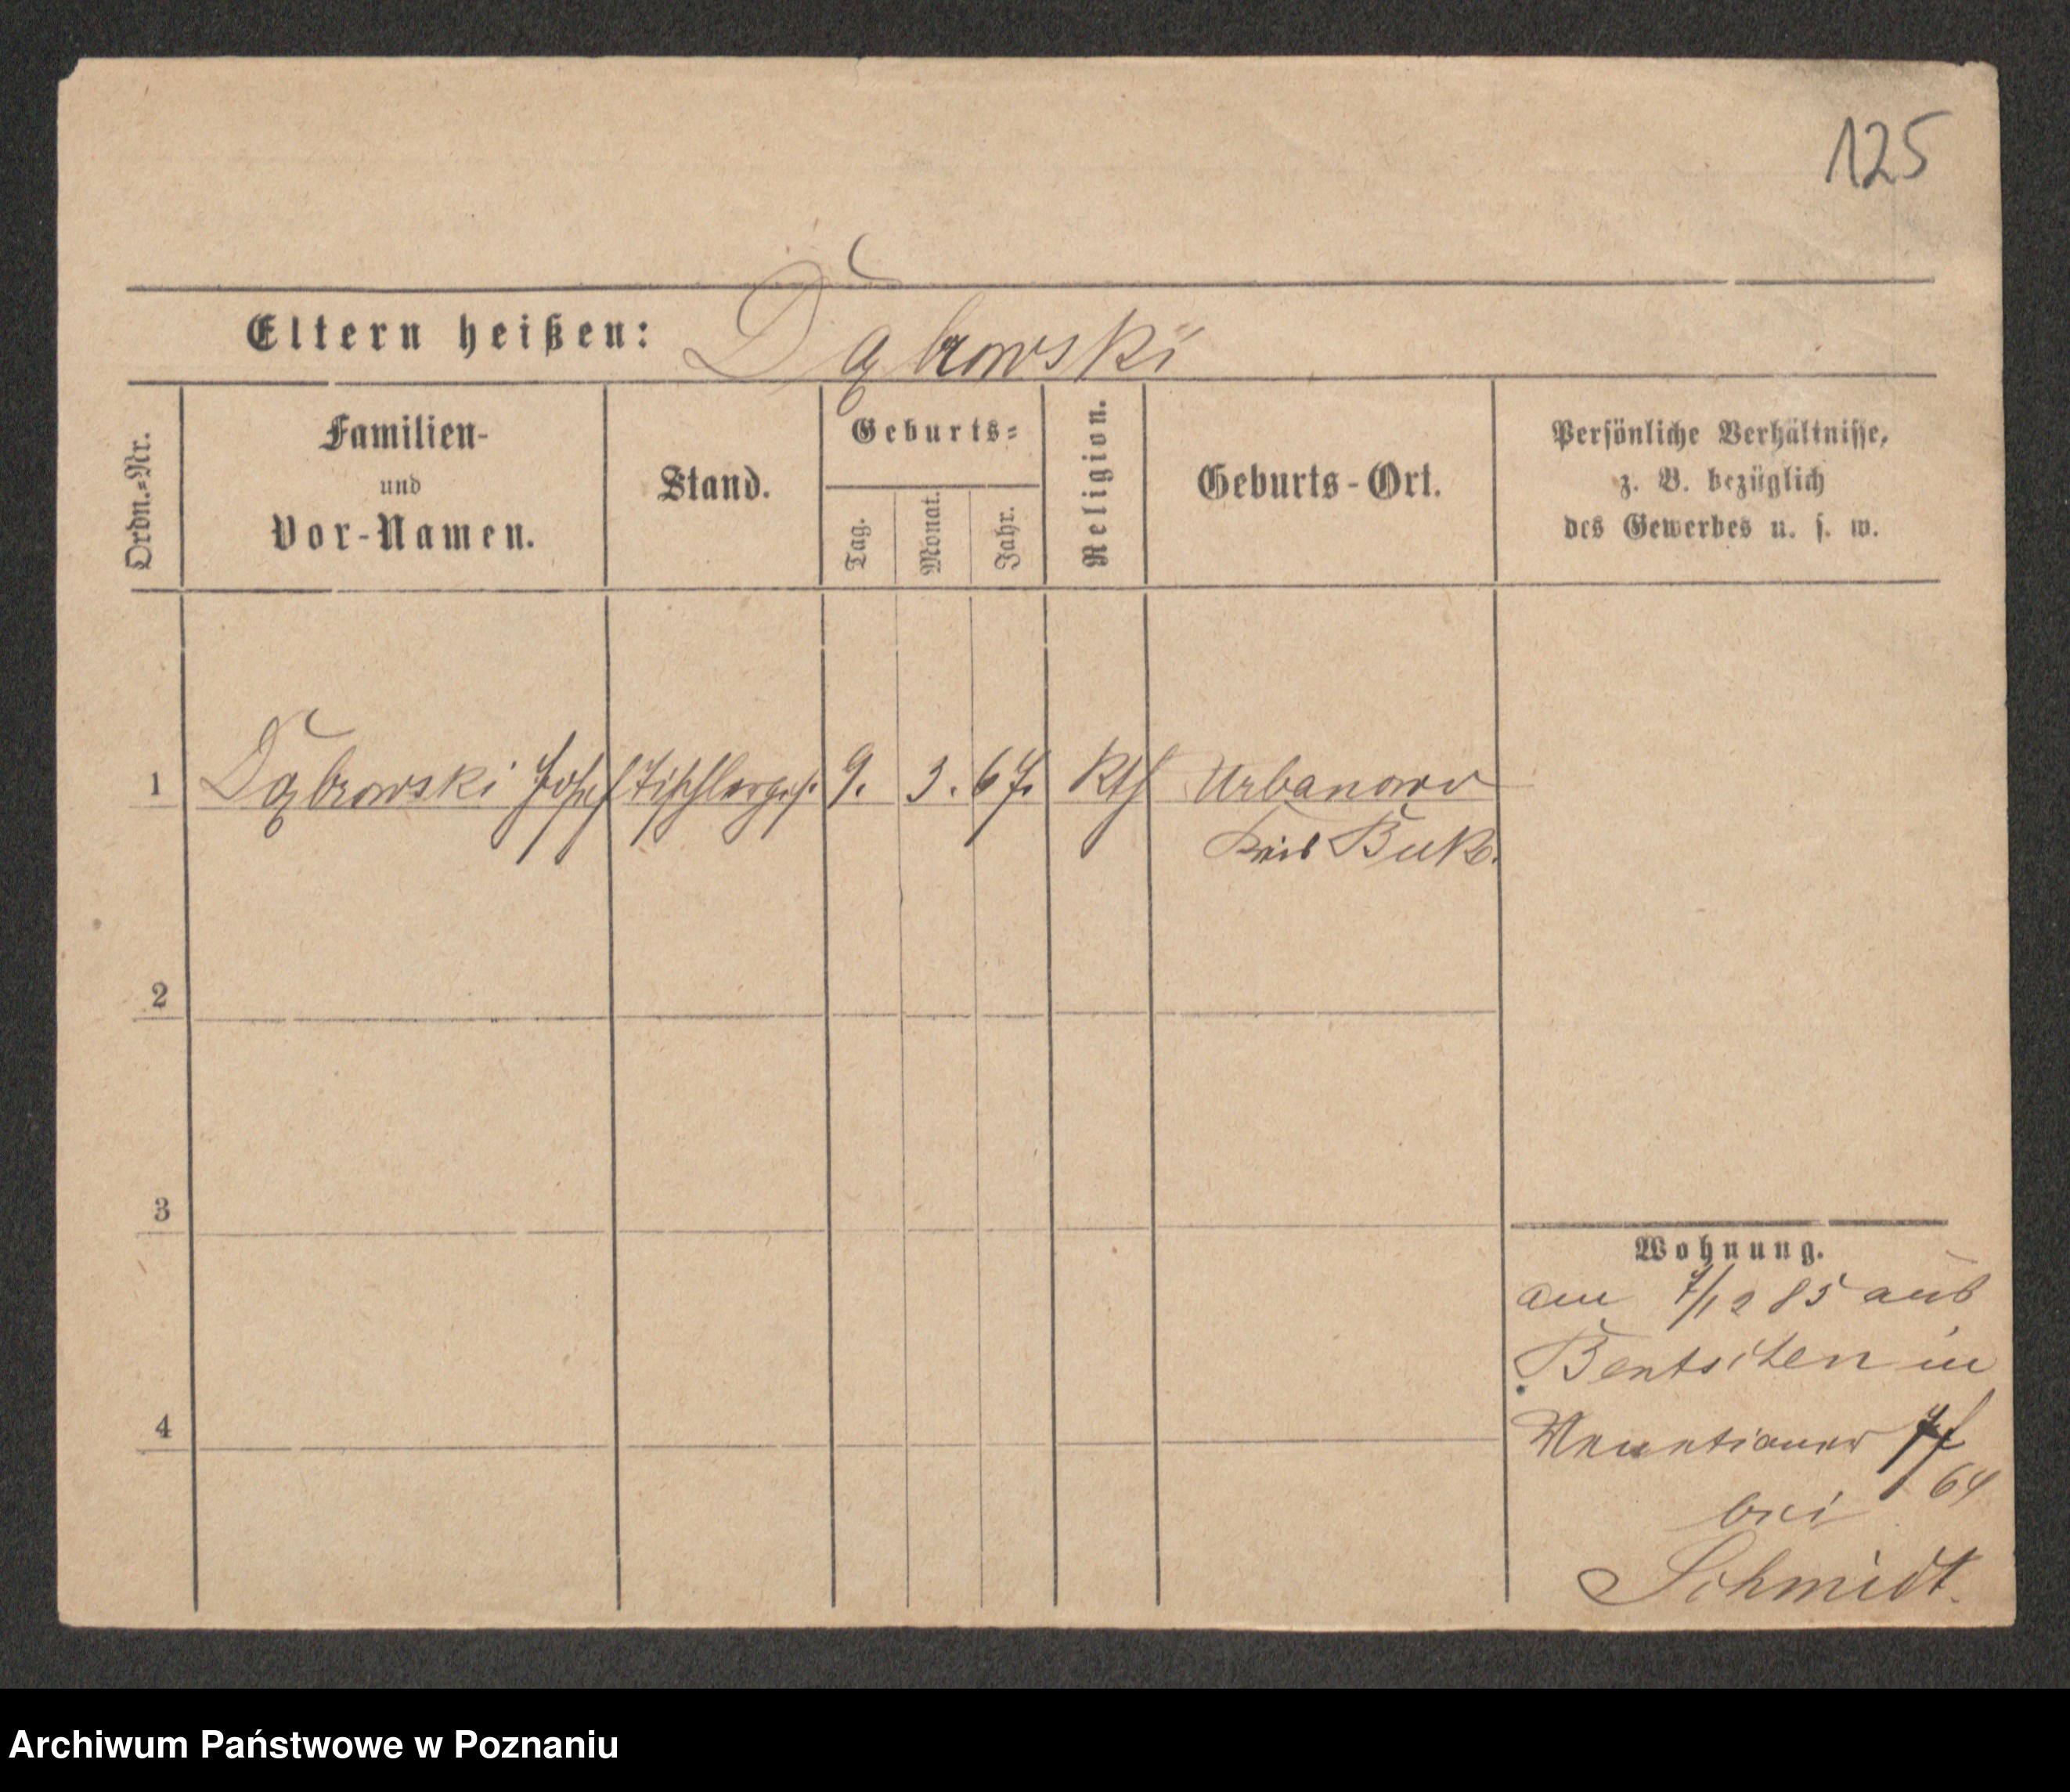 125
Eltern heißen: Dąbrowski
Ordn.-Nr.
Familien-
und
Vor-Namen.
Stand.
Geburts-
Tag.
Monat.
Jahr.
Religion.
Geburts-Ort.
Persönliche Verhältnisse,
z. B. bezüglich
des Gewerbes u. s. w.
1 Dąbrowski Josef Tischlerges. 9. 3. 67. kth Urbanowo
Kreis Buk.
2
3
4
Wohnung.
am 7/12 85 aus
Bentschen in
64
bei
Schmidt.
Archiwum Państwowe w Poznaniu